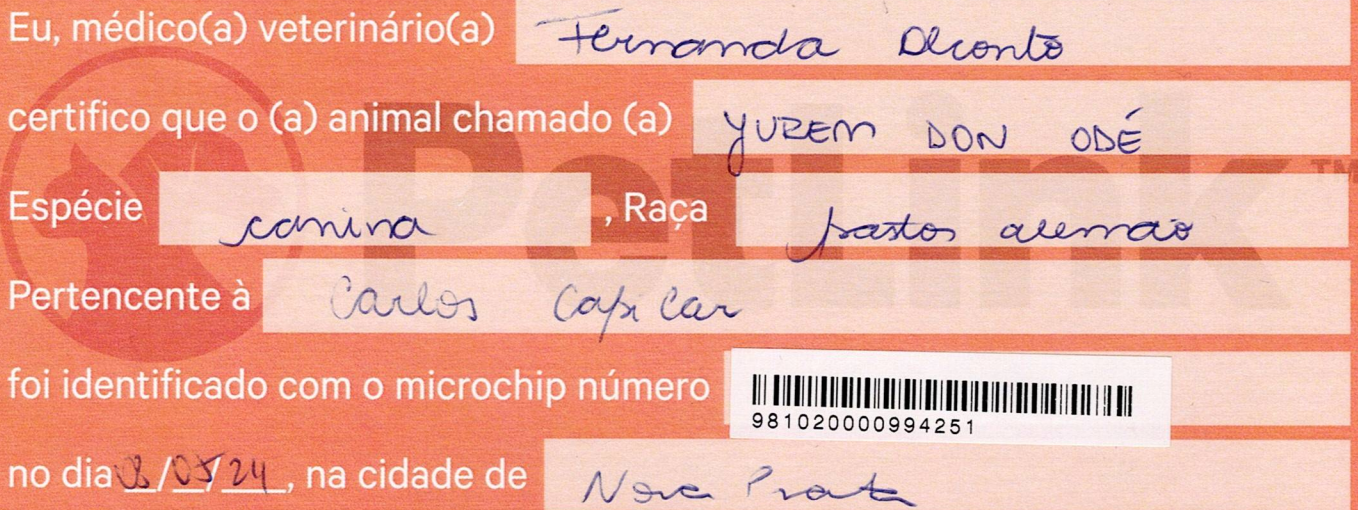 Eu, médico(a) veterinário(a) Fernanda Dconto
certifico que o (a) animal chamado (a) YUREM DON ODÉ
PetLink™
Espécie canina , Raça pastor alemão
Pertencente à Carlos Capilar
foi identificado com o microchip número
981020000994251
no dia 08/05/24, na cidade de Nova Prata